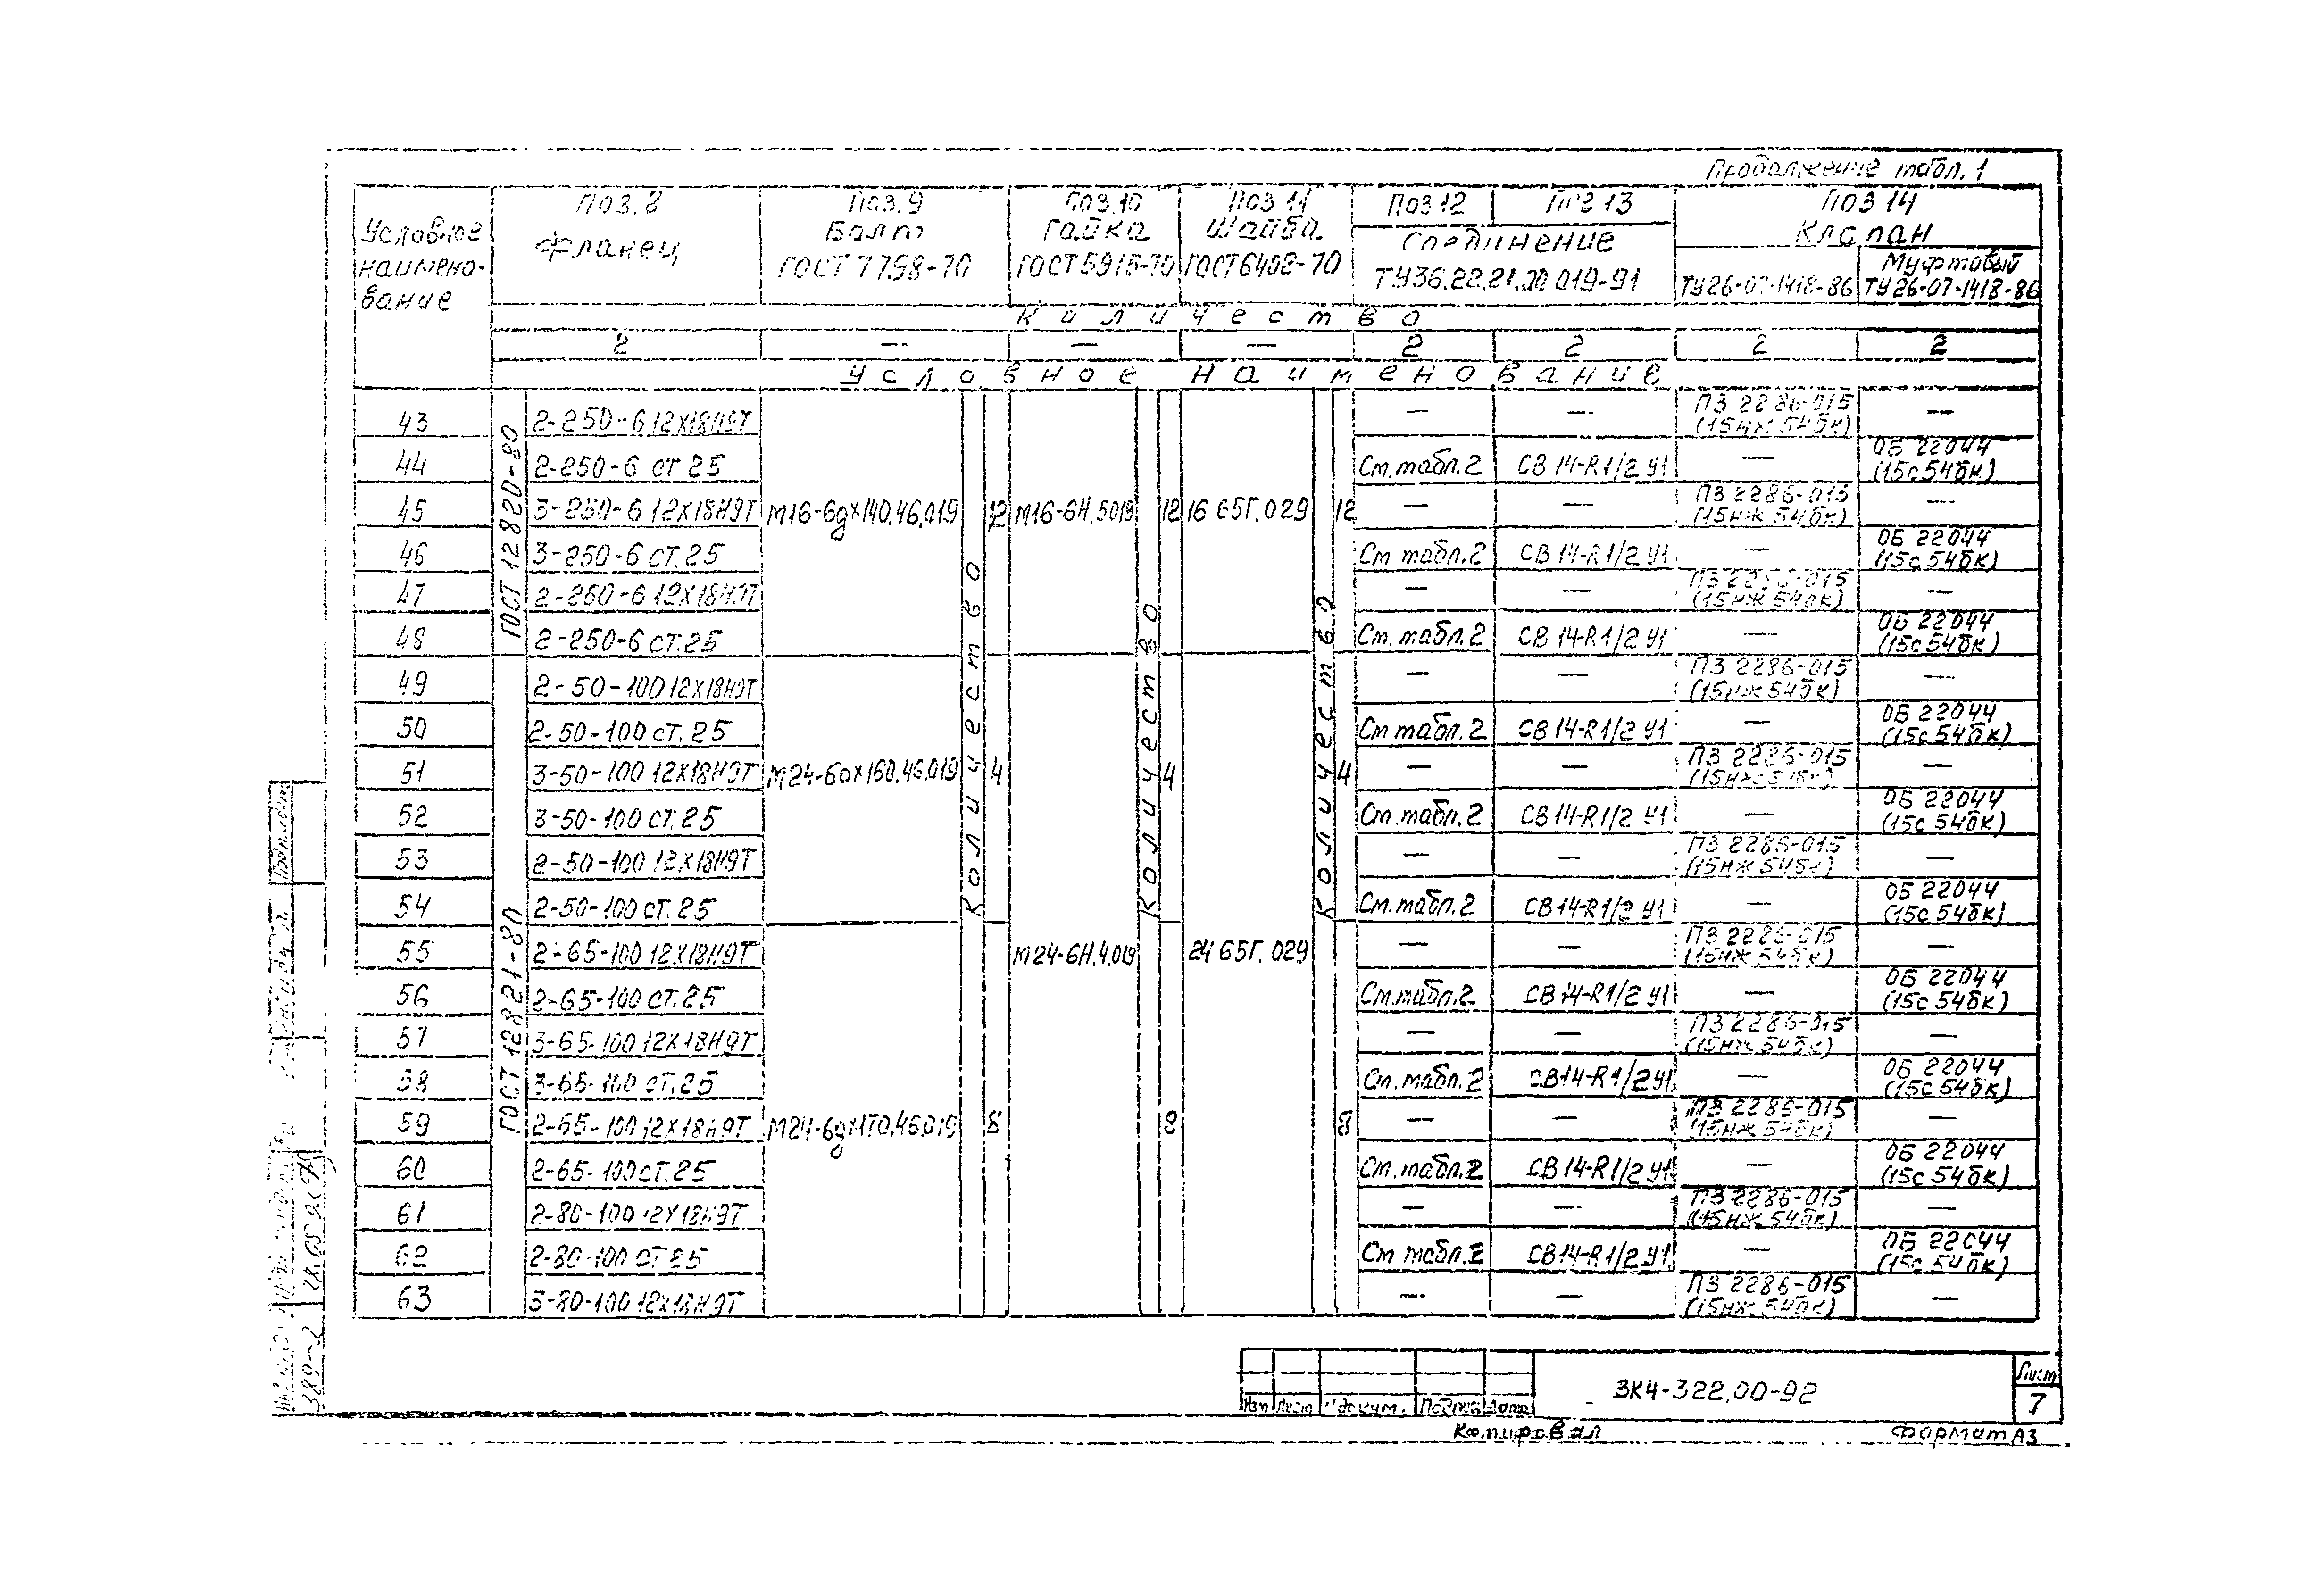 Продолжение табл. 1
Условное наимено-вание
Поз. 8 Фланец
Поз. 9 Болт ГОСТ 7798-70
Поз. 10 Гайка ГОСТ 5915-70
Поз 11 Шайба ГОСТ 6402-70
Поз 12
Поз 13
Соединение
ТУ36.22.21.00.019-91
Поз 14
Клапан
ТУ26-07-1418-86
Муфтовый ТУ26-07-1418-86
Количество
2 — — — 2 2 2 2
Условное наименование
ГОСТ 12820-80
ГОСТ 12821-80
Количество
Количество
Количество
43 2-250-6 12Х18Н9Т — — ПЗ 2286-015 (15нж 54бк) —
44 2-250-6 ст 25 См. табл. 2 СВ 14-R1/2 У1 — ОБ 22044 (15с 54бк)
45 3-250-6 12Х18Н9Т М16-6gх140.46.019 12 М16-6Н.5019 12 16 65Г.029 12 — — ПЗ 2286-015 (15нж 54бк) —
46 3-250-6 ст. 25 См табл. 2 СВ 14-R1/2 У1 — ОБ 22044 (15с 54бк)
47 2-250-6 12Х18Н9Т — — ПЗ 2286-015 (15нж 54бк) —
48 2-250-6 ст. 25 См. табл. 2 СВ 14-R1/2 У1 — ОБ 22044 (15с 54бк)
49 2-50-100 12Х18Н9Т — — ПЗ 2286-015 (15нж 54бк) —
50 2-50-100 ст. 25 См табл. 2 СВ 14-R1/2 У1 — ОБ 22044 (15с 54бк)
51 3-50-100 12Х18Н9Т М24-6gх160.46.019 4 4 4 — — ПЗ 2286-015 (15нж 54бк) —
52 3-50-100 ст. 25 См. табл. 2 СВ 14-R1/2 У1 — ОБ 22044 (15с 54бк)
53 2-50-100 12Х18Н9Т — — ПЗ 2286-015 (15нж 54бк) —
54 2-50-100 ст. 25 См. табл. 2 СВ 14-R1/2 У1 — ОБ 22044 (15с 54бк)
55 2-65-100 12Х18Н9Т М24-6Н.4.019 24 65Г.029 — — ПЗ 2286-015 (15нж 54бк) —
56 2-65-100 ст. 25 См. табл. 2 СВ 14-R1/2 У1 — ОБ 22044 (15с 54бк)
57 3-65-100 12Х18Н9Т — — ПЗ 2286-015 (15нж 54бк) —
58 3-65-100 ст. 25 См. табл. 2 СВ 14-R1/2 У1 — ОБ 22044 (15с 54бк)
59 2-65-100 12Х18Н9Т М24-6gх170.46.019 8 8 8 — — ПЗ 2286-015 (15нж 54бк) —
60 2-65-100 ст. 25 См. табл. 2 СВ 14-R1/2 У1 — ОБ 22044 (15с 54бк)
61 2-80-100 12Х18Н9Т — — ПЗ 2286-015 (15нж 54бк) —
62 2-80-100 ст 25 См табл. 2 СВ 14-R1/2 У1 — ОБ 22044 (15с 54бк)
63 3-80-100 12Х18Н9Т — — ПЗ 2286-015 (15нж 54бк) —
389-2
Изм Лист № докум. Подпись Дата
ЗК4-322.00-92
Лист
7
Копировал
Формат А3